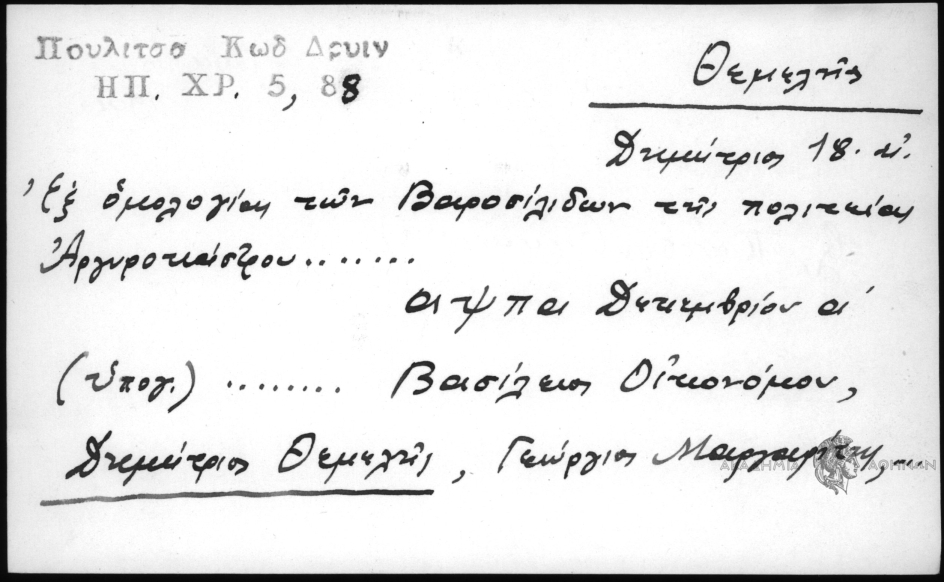 Πουλιτσο Κωδ Δρυιν
ΗΠ. ΧΡ. 5, 88
Θεμελῆς
Δημήτριος 18. αἰ.
Ἐξ ὁμολογίας τῶν Βαροσίλιδων τῆς πολιτείας
Ἀργυροκάστρου.......
αψπα Δεκεμβρίου α΄
(ὑπογ.) ........ Βασίλειος Οἰκονόμου,
Δημήτριος Θεμελῆς, Γεώργιος Μαργαρίτης,...
ΑΚΑΔΗΜΙΑ ΑΘΗΝΩΝ